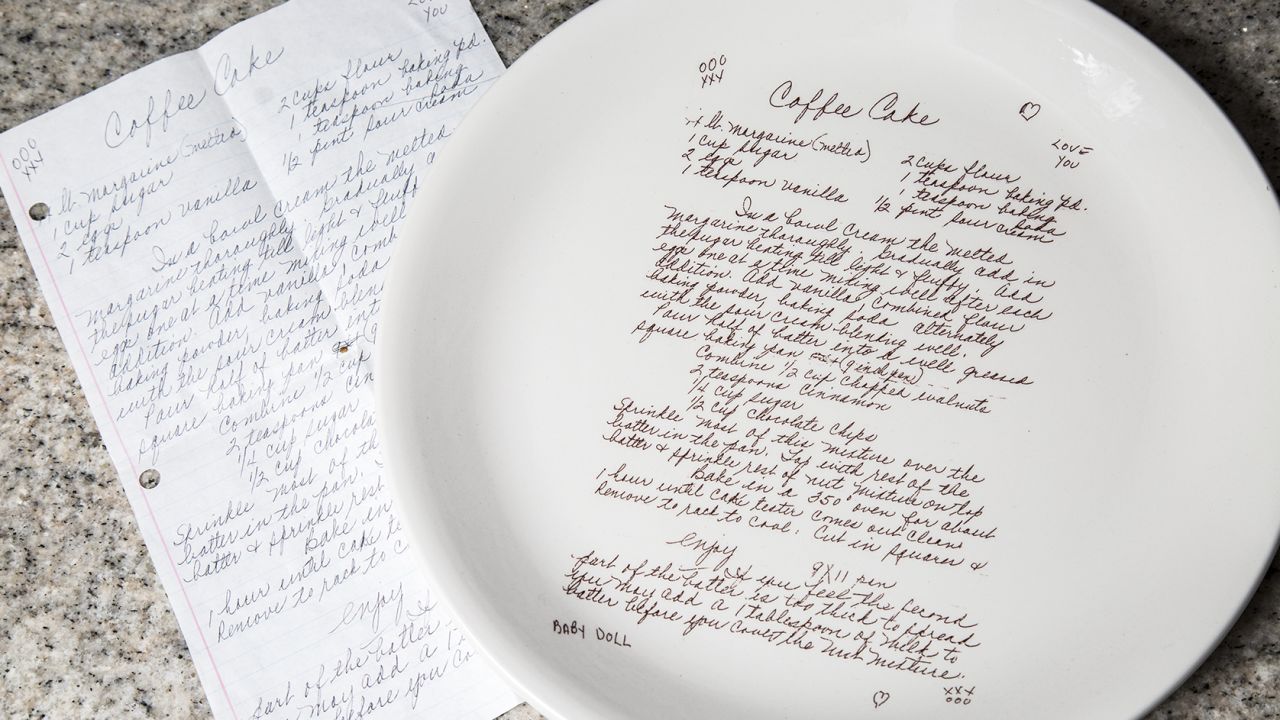 LOVE
YOU
OOO
XXX
Coffee Cake
lb. margarine (melted)
1 cup sugar
2 eggs
1 teaspoon vanilla
2 cups flour
1 teaspoon baking pd.
1 teaspoon baking
soda
1/2 pint sour cream
In a bowl cream the melted
margarine thoroughly. Gradually a
the sugar beating till light & fluff
eggs one at a time mixing well
addition. Add vanilla. Comb
baking powder, baking soda
with the sour cream blen
Pour half of batter int
square baking pan
Combine 1/2 cup
2 teaspoons cin
1/4 cup sugar
1/2 cup chocola
Sprinkle most of th
batter in the pan.
batter & sprinkle rest
Bake in
1 hour until cake te
Remove to rack to c
enjoy
part of the batter
you may add a 1
batter before you co
OOO
XXX
Coffee Cake
LOVE
YOU
lb. margarine (melted)
1 cup sugar
2 eggs
1 teaspoon vanilla
2 cups flour
1 teaspoon baking pd.
1 teaspoon baking
soda
1/2 pint sour cream
In a bowl cream the melted
margarine thoroughly. Gradually add in
the sugar beating till light & fluffy. Add
eggs one at a time mixing well after each
addition. Add vanilla. Combined flour
baking powder, baking soda alternately
with the sour cream blending well.
Pour half of batter into a well greased
square baking pan (9 inch pan)
Combine 1/2 cup chopped walnuts
2 teaspoons cinnamon
1/4 cup sugar
1/2 cup chocolate chips
Sprinkle most of this mixture over the
batter in the pan. Top with rest of the
batter & sprinkle rest of nut mixture on top
Bake in a 350° oven for about
1 hour until cake tester comes out clean
Remove to rack to cool. Cut in squares &
enjoy
9X11 pan
If you feel the second
part of the batter is too thick to spread
you may add a 1 tablespoon of milk to
batter before you cover the nut mixture.
BABY DOLL
XXX
OOO